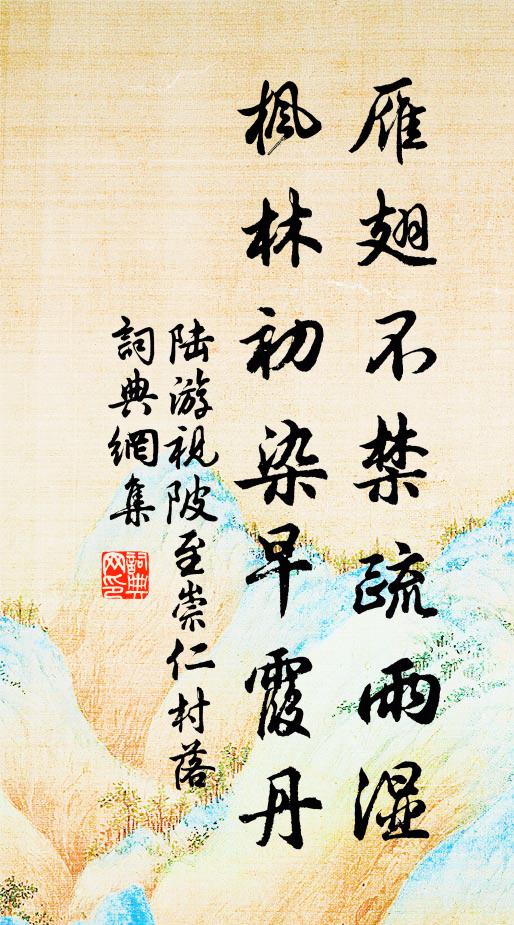 雁翅不禁疏雨湿
枫林初染早霞丹
陆游视陂至崇仁村落
詞典網集
詞典